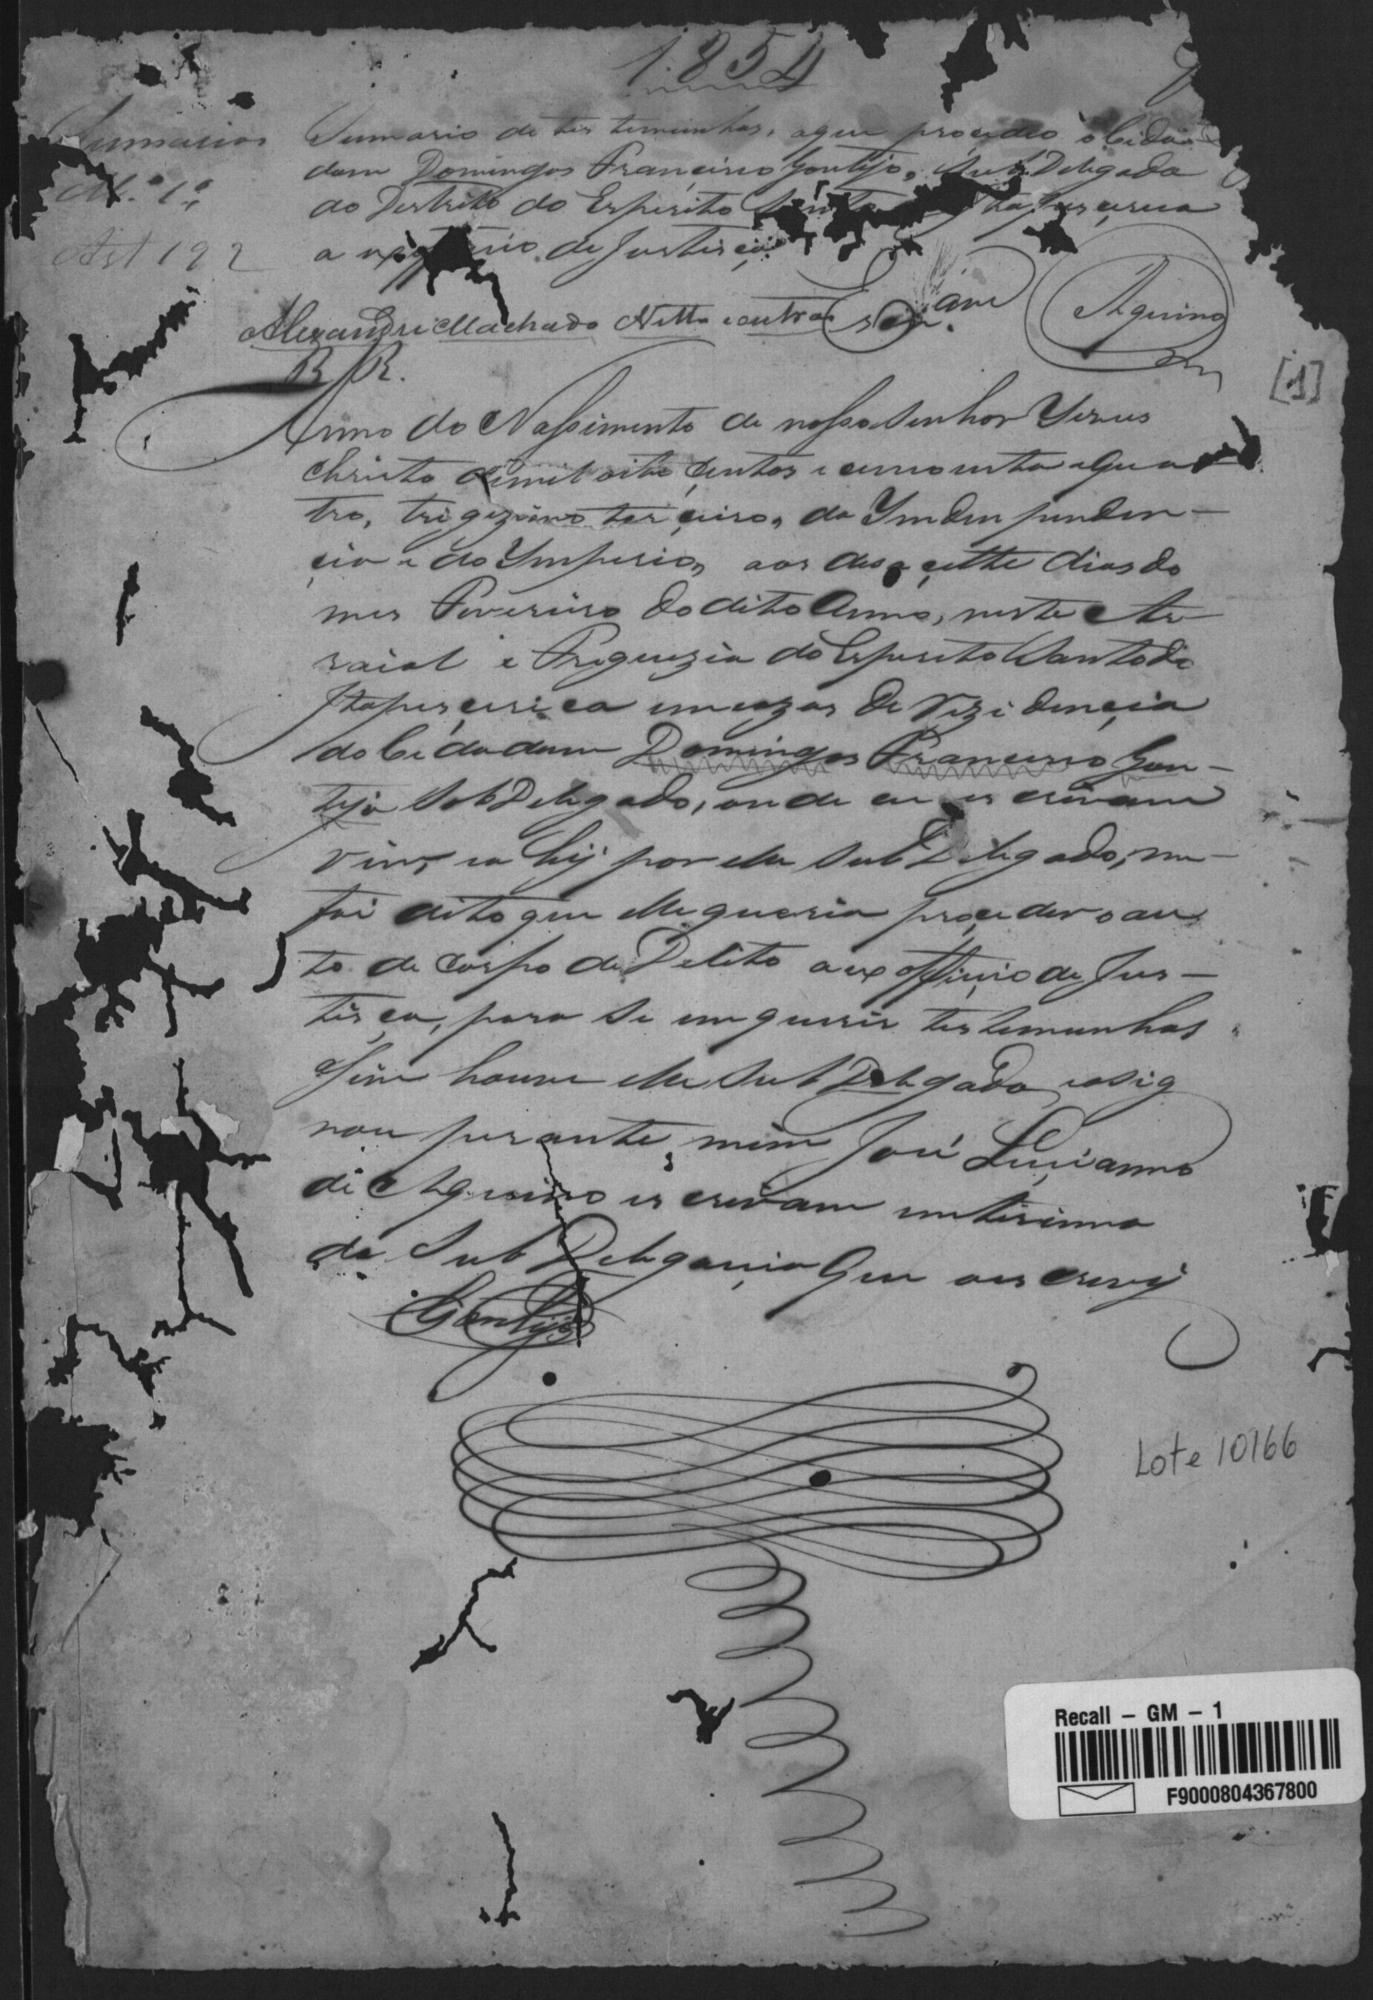 1854
Summarios
Summario de testemunhas, aque procedeo o Cida
dam Domingos Francisco Gontijo, Sub Delegado
N.º 1º
do Destrito do Espirito Santo
Art 192
a de Justiça
Alexandre Machado Netto e outros
Escr.am
Aquino
R R.
[1]
Anno do Nassimento de nosso Senhor Yezus
Christo demil oito Centos e cincoenta e qua
tro, trigezimo terceiro, da Yndenpenden-
cia e do Ymperio, aos deza çette dias do
mes Fevereiro do dito Anno, neste Ar-
raial e Freguezia do Espirito Santo de
Itapecerica em cazas de Rezidencia
do Cidadam Domingos Francisco Gon-
tijo Sub Delegado, onde eu escrivam
vim, e ahy por elle Sub Delegado, me
foi dito que elle queria proceder o au
to de Corpo de Delito a ex officio de Jus-
tiça, para se enquerir testemunhas
e sim houve elle Sub Delegado, e asig
nou perante mim José Lucianno
de Aquino escrivam enterinno
da Sub Delegacia que o escrevy
Gontijo
Lote 10166
Recall - GM - 1
F9000804367800